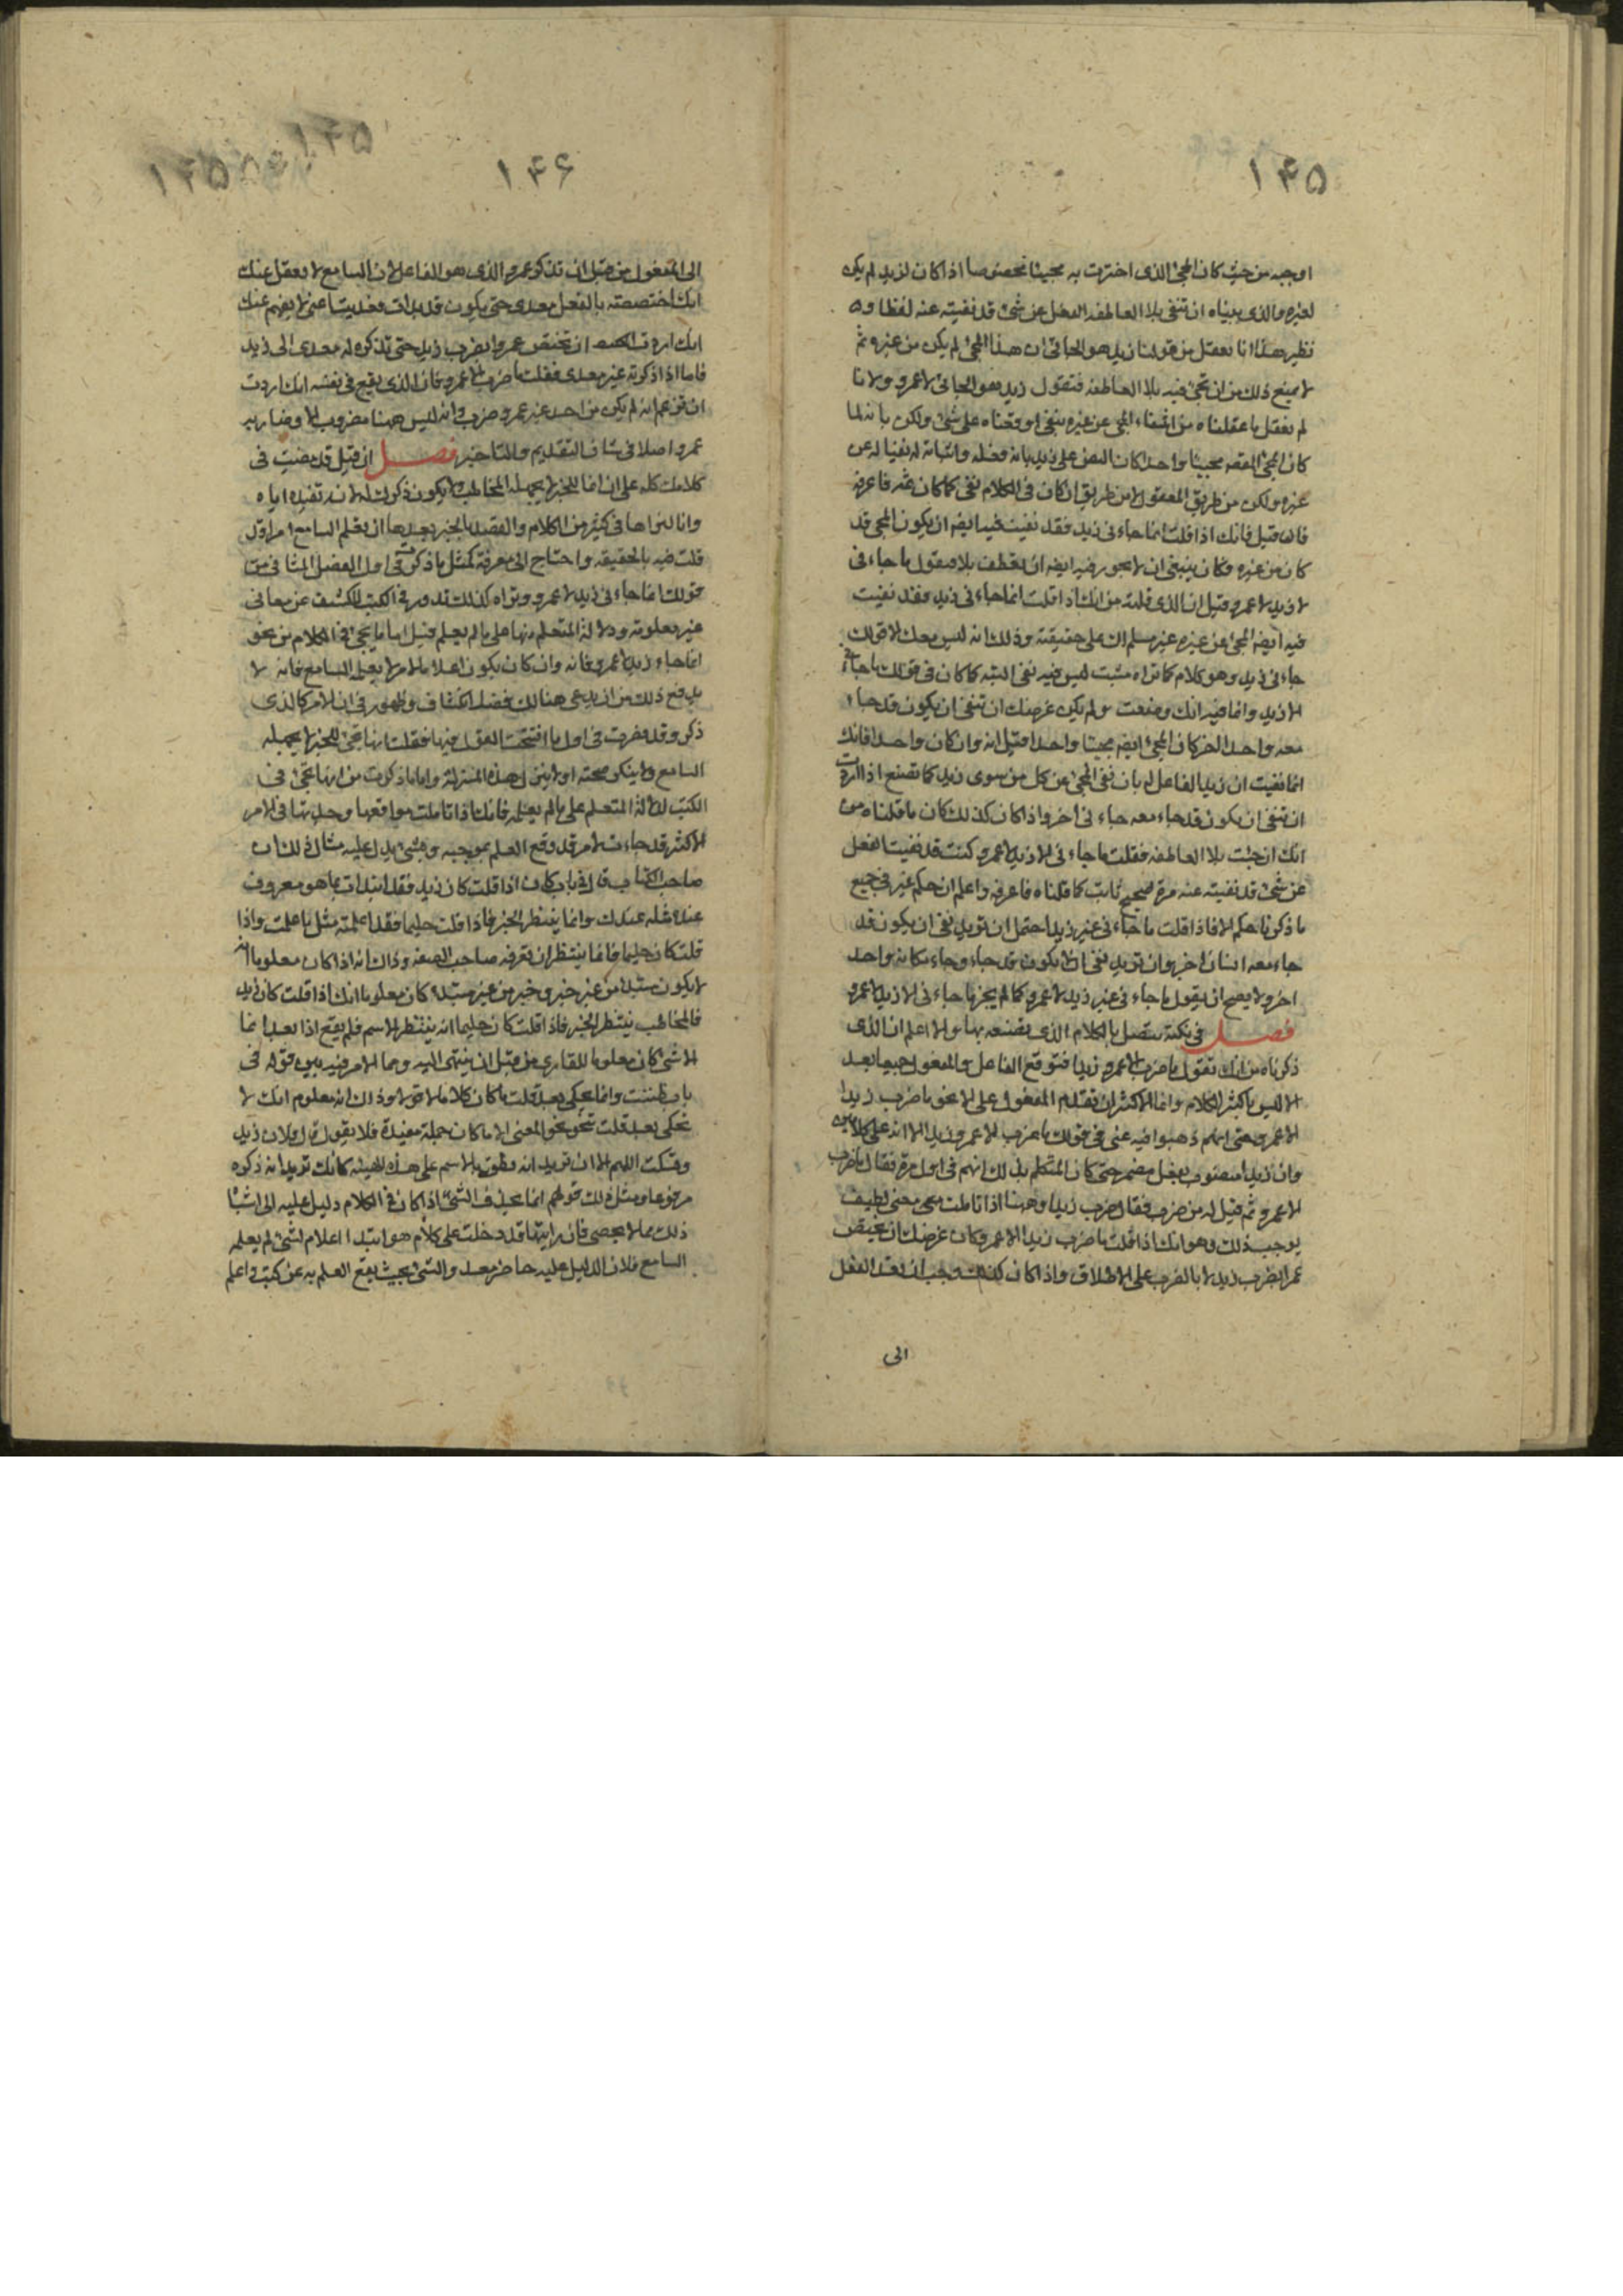 ١۴۵
اوجبه من حيث كان المجئ الذى اخبرت به مجيئا مخصوصا اذا كان لزيد لم يكن
لغيره والذى بيناه ان تنفى بلا العاطفه الفعل عن شئ قد نفيته عنه لفظا و
نظير هذا انا نعقل من قولنا زيد هو الجائى ان هذا المجئ لم يكن من غيره ثم
لا يمنع ذلك من ان تجئ فيه بلا العاطفه فتقول زيد هو الجائى لا عمرو ولانا
لم نعقل ما عقلناه من انتفاء المجئ عن غيره بنفى اوقعناه على شئ ولكن بانه لما
كان المجئ المقصود مجيئا واحدا كان النص على زيد بانه فعله واثباته له نفيا له عن
غيره ولكن من طريق المعقول لا من طريق ان كان فى الكلام نفى كما كان ثمه فاعرفه
فان قيل فانك اذا قلت انما جاءنى زيد فقد نفيت فيه ايضه ان يكون المجئ قد
كان من غيره فكان ينبغى ان لا يجوز فيه ايضه ان يعطف بلا فتقول ما جاءنى
لا زيد لا عمرو قيل ان الذى قلته من انك اذا قلت انما جاءنى زيد فقد نفيت
فيه ايضه المجئ عن غيره غير مسلم لك على حقيقته وذلك انه ليس معك الا قولك
جاءنى زيد وهو كلام كما تراه مثبت ليس فيه نفى البته كما كان فى قولك ما جاءنى
الا زيد وانما فيه انك وضعت
معه واحد اخر كان المجئ ايضه مجيئا واحدا قيل انه وان كان واحدا فانك
انما نفيت ان زيدا الفاعل له بان نفى المجئ عن كل من سوى زيد كما تصنع اذا اردت
ان تنفى ان يكون قد جاء معه جاءنى اخر واذا كان كذلك كان ما قلناه من
انك ان جئت بلا العاطفه فقلت ما جاءنى الا زيد لا عمرو كنت قد نفيت الفعل
عن شئ قد نفيته عنه مرة صحيح ثابت كما قلناه فاعرفه واعلم ان حكم غير فى جميع
ما ذكرنا حكم الا فاذا قلت ما جاءنى غير زيد احتمل ان تريد نفى ان يكون قد
جاء معه انسان اخر وان تريد نفى ان لا يكون قد جاء وجاء مكانه واحد
اخر ولا يصح ان يقول ما جاءنى غير زيد لا عمرو كما لم يجز ما جاءنى الا زيد لا عمرو
فصل فى نكتة تتصل بالكلام الذى تضعه بما والا اعلم ان الذى
ذكرناه من انك تقول ما ضرب الا عمرو زيدا فتوقع الفاعل والمفعول جميعا بعد
الا ليس باكثر الكلام وانما الاكثر ان تقدم المفعول على الا نحو ما ضرب زيدا
الا عمرو حتى انهم ذهبوا فيه عنى فى قولك ما ضرب الا عمرو زيدا الا انه على كلامين
وان زيدا منصوب بفعل مضمر حتى كان المتكلم بذلك ابهم فى اول مرة فقال ما ضرب
الا عمرو ثم قيل له من ضرب فقال ضرب زيدا وههنا اذا تاملت معنى لطيف
يوجب ذلك وهو انك اذا قلت ما ضرب زيدا الا عمرو كان غرضك ان تختص
عمرا بضرب زيد لا بالضرب على الاطلاق واذا كان كذلك وجب ان تعدى الفعل
الى
١۴۶
١۴۵
١۴۵
الى المفعول من قبل ان تذكر عمروا الذى هو الفاعل لان السامع لا يعقل عنك
انك اختصصته بالفعل معدى حتى يكون قد بدات فعديت اعنى لا يفهم عنك
انك اردت ان تختص عمروا بضرب زيد حتى تذكره له معدى الى زيد
فاما اذا ذكرته غير معدى فقلت ما ضرب الا عمرو فان الذى يقع فى نفسه انك اردت
ان تزعم انه لم يكن من احد غير عمرو ضرب وانه ليس ههنا مضروب الا وضاربه
عمرو اصلا فى شان التقديم والتاخير فصل ان قيل قد مضيت فى
كلامك كله على ان انما للخبر لا يجهله المخاطب ولا يكون ذكرك له لان تفيده اياه
وانا لنراها فى كثير من الكلام والقصد بالخبر بعدها ان تعلم السامع امرا قد
قلت فيه بالحقيقه واحتاج الى معرفة كمثل ما ذكرت فى اول الفصل الثانى من
قولك انما جاءنى زيد لا عمرو وتراه كذلك تدور فى الكتب للكشف عن معانى
غير معلومة ودلالة المتعلم منها على ما لم يعلم قيل اما ما يجئ فى الكلام من نحو
انما جاء زيد لا عمرو فانه وان كان يكون اعلاما لامر لا يعلمه السامع فانه لا
بد مع ذلك من ان يدعى هنالك فضل انكشاف وظهور فى ان الامر كالذى
ذكر وقد قدمت فى اول ما افتتحت القول فيها فقلت انها تجئ للخبر لا يجهله
السامع ولا ينكر صحته او لما ينزل هذه المنزلة واما ما ذكرت من انها تجئ فى
الكتب لدلالة المتعلم على ما لم يعلمه فانك اذا تاملت مواقعها وجدتها فى الامر
الاكثر قد جاءت لامر قد وقع العلم بموجبه وبشئ يدل عليه مثال ذلك ان
صاحب الكتاب قال فى باب كان اذا قلت كان زيد فقد ابتدات بما هو معروف
عنده مثله عندك وانما ينتظر الخبر فاذا قلت حليما فقد اعلمته مثل ما علمت واذا
قلت كان حليما فانما ينتظر ان تعرفه صاحب الصفه وذاك انه اذا كان معلوما انه
لا يكون مبتدا من غير خبر وخبر من غير مبتدا كان معلوما انك اذا قلت كان زيد
فالمخاطب ينتظر الخبر فاذا قلت كان حليما انه ينتظر الاسم فلم يقع اذا بعد انما
الا شئ كان معلوما للقارى من قبل ان ينتهى اليه ومما الامر فيه بين قوله فى
باب ظننت وانما يحكى بعد قلت ما كان كلاما لا قولا وذاك انه معلوم انك لا
تحكى بعد قلت نحو نحو المعنى الا ما كان جملة مفيدة فلا يقول قال فلان زيد
وتسكت اللهم الا ان تريد انه نطق بالاسم على هذه الهيئه كانك تريد انه ذكره
مرفوعا ومثل ذلك قولهم انما يحذف الشئ اذا كان فى الكلام دليل عليه الى اشباه
ذلك مما لا يحصى فان رايتها قد دخلت على كلام هو ابتداء اعلام لشئ لم يعلمه
السامع فلان الدليل عليه حاضر معه والشئ بحيث يقع العلم به عن كثب واعلم